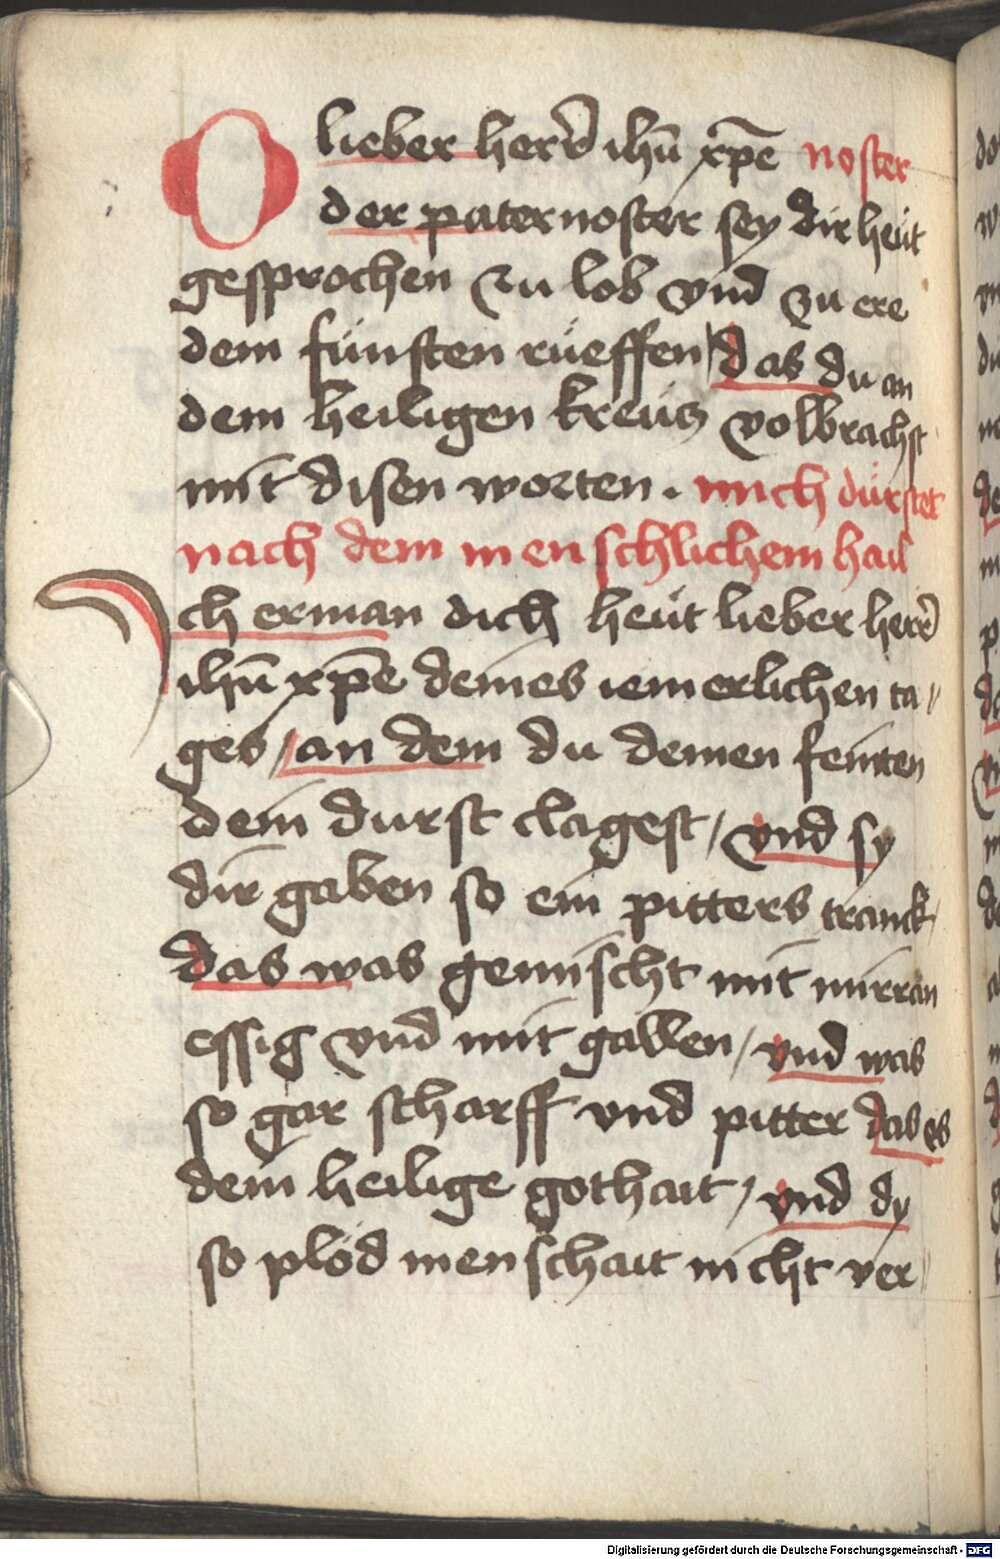 O lieber herr ihū xp̄e noster
der pater noster sey dir heüt
gesprochen zu lob vnd zu ere
dem fünften rüeffen / das du an
dem heiligen kreücz volbrachst
mit disen worten . mich dürstet
nach dem menschlichem hail
Ich erman dich heüt lieber herr
ihū xp̄e deines iemerlichen ta〃
ges / an dem du deinen feinten
dein durst clagest / vnd sy
dir gaben so ein pitters tranck /
das was gemischt mit mirran
essig vnd mit gallen / vnd was
so gar scharff vnd pitter das es
dein heilige gothait / vnd dy
so plöd menschait nicht ver〃
Digitalisierung gefördert durch die Deutsche Forschungsgemeinschaft - DFG